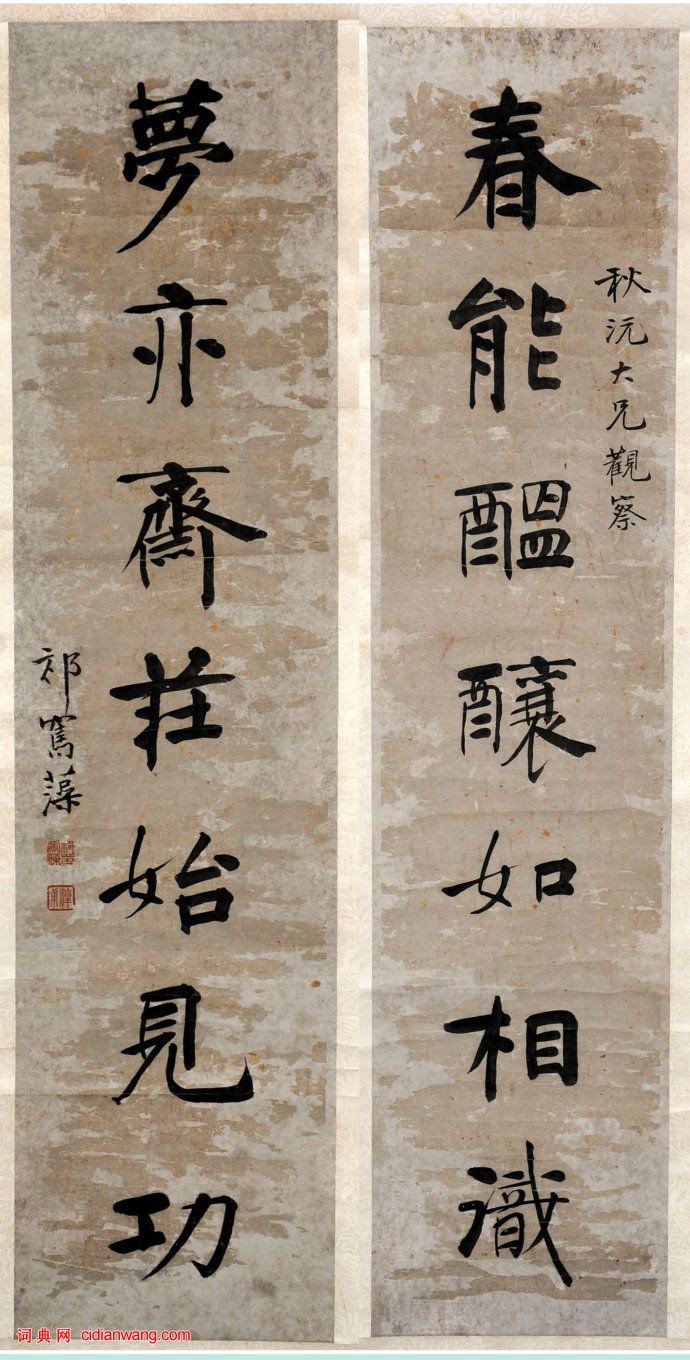 春能醞釀如相識
秋沅大兄觀察
夢亦齋莊始見功
祁寯藻
词典网 cidianwang.com